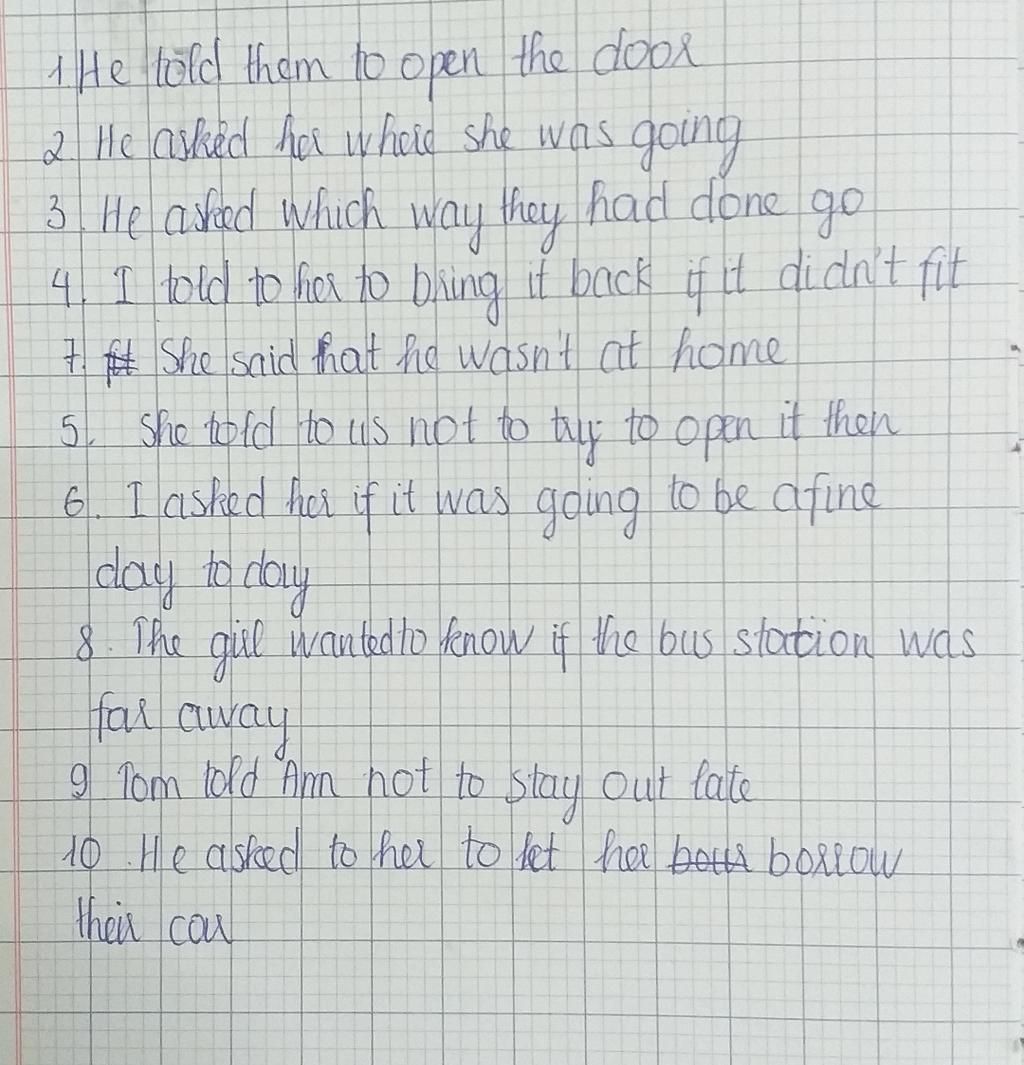 1. He told them to open the door
2. He asked her where she was going
3. He asked which way they had done go
4. I told to her to bring it back if it didn't fit
7. She said that he wasn't at home
5. She told to us not to try to open it then
6. I asked her if it was going to be a fine
day to day
8. The girl wanted to know if the bus station was
far away
9 Tom told Ann not to stay out late
10. He asked to her to let her borrow
their car